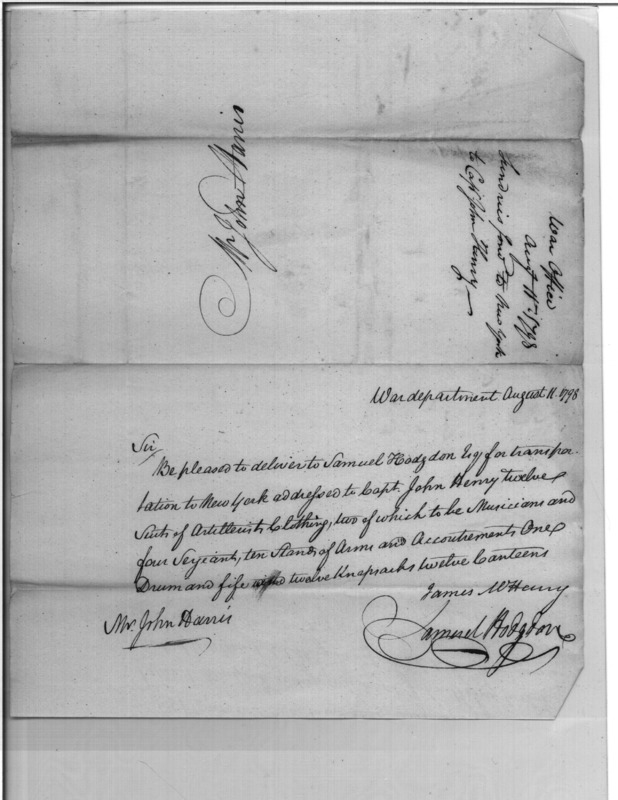 Mr John Harris
War Office
Augt 11th 1798
Sundries forwd to New York
to Capt John Henry
War department August 11. 1798
Sir
Be pleased to deliver to Samuel Hodgdon Esq for transpor-
tation to New York addressed to Capt. John Henry twelve
Suits of Artillerists Clothing, two of which to be Musicians and
four Serjeant, ten Stands of Arms and Accoutrements One
Drum and fife twelve Knapsacks twelve Canteens
James McHenry
Mr John Harris
Samuel Hodgdon